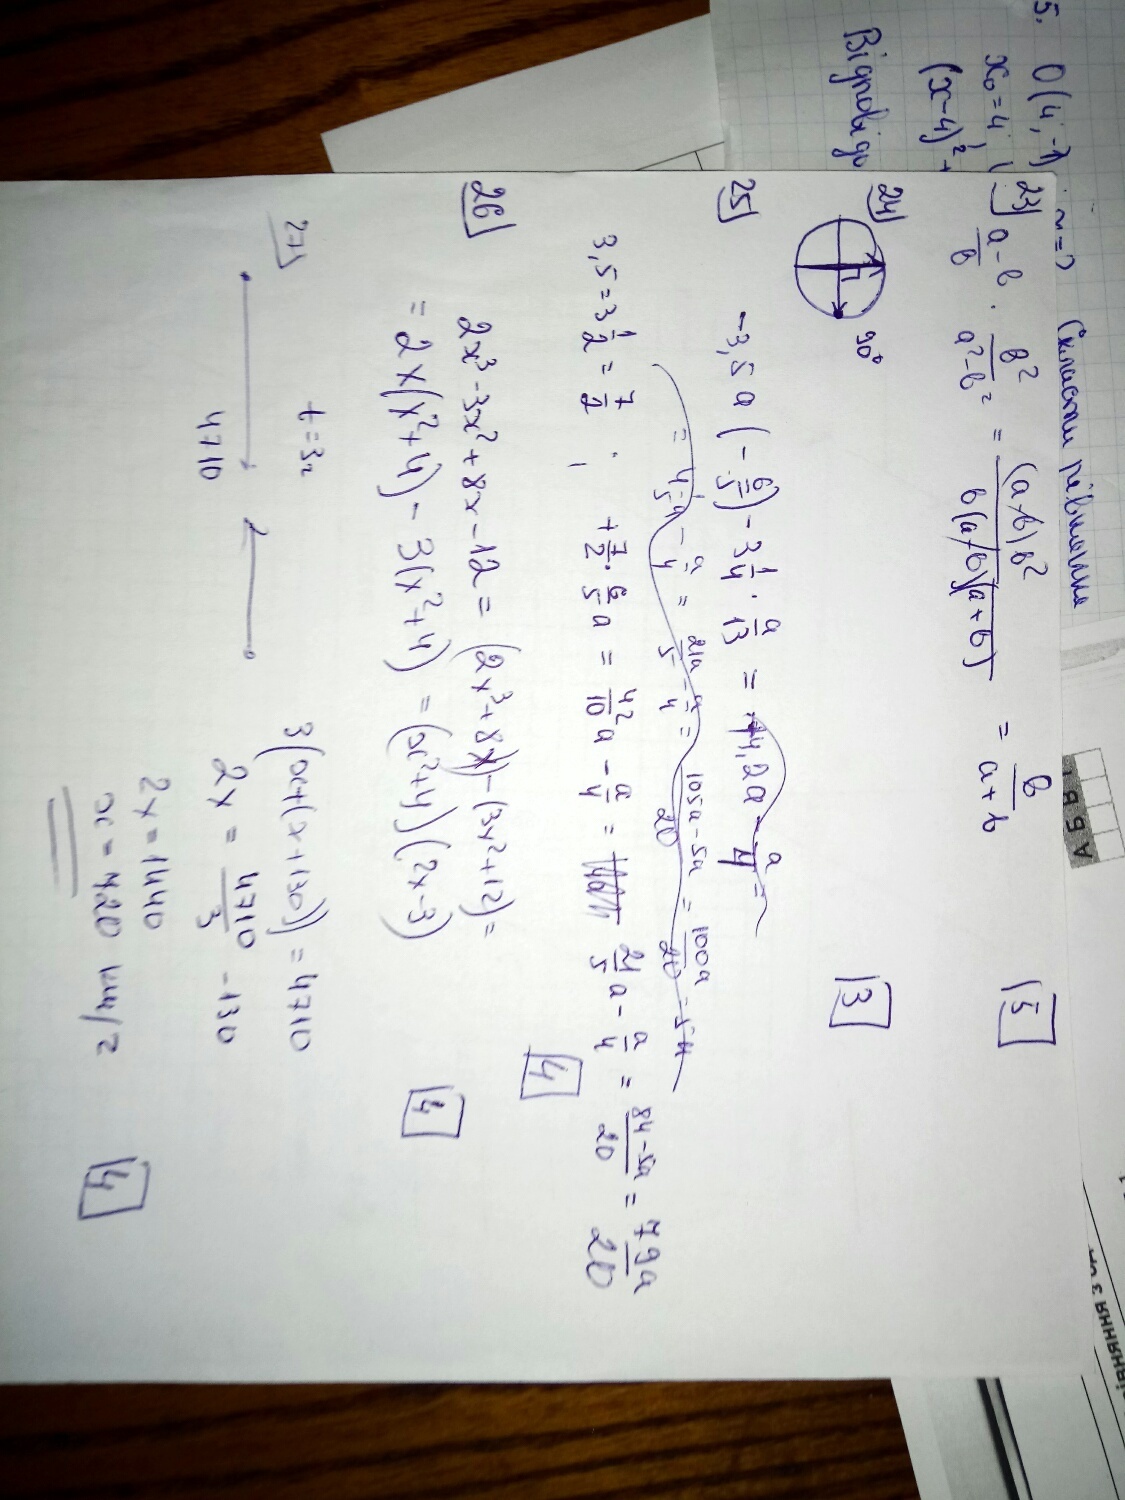 5. O(4;-1)
x₀=4,
(x-4)²+
Скласти рівняння
А Б В
23) (a-b)/b · b²/(a²-b²) = (a-b)b²/(b(a-b)(a+b)) = b/(a+b)
5
24)
90°
3
25) -3,5a(-6/5) - 3 1/4 · a/13 = 4,2a - a/4 =
= 4 1/5 a - a/4 = 21a/5 - a/4 = (105a-5a)/20 = 100a/20 = 5a
3,5 = 3 1/2 = 7/2 ; + 7/2 · 6/5 a = 42/10 a - a/4 = 21/5 a - a/4 = (84-5a)/20 = 79a/20
4
26) 2x³-3x²+8x-12 = (2x³+8x)-(3x²+12) =
= 2x(x²+4) - 3(x²+4) = (x²+4)(2x-3)
4
27) t=3г
4710
3(x+(x+130)) = 4710
2x = 4710/3 - 130
2x=1440
x=720 км/г
4